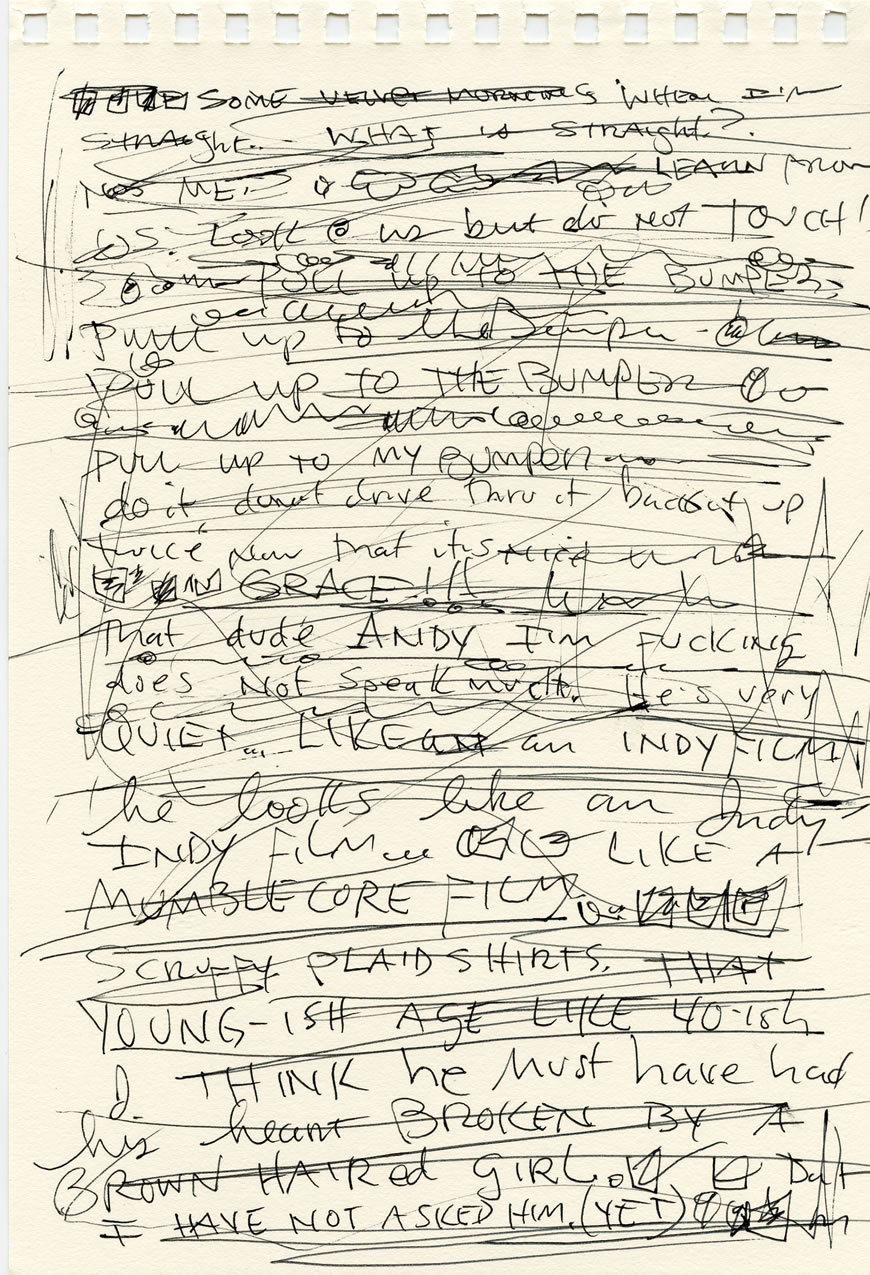 SOME VELVET MORNING WHEN I'M
STRAIGHT... WHAT is STRAIGHT?.
NOT ME. LEARN FROM
US: LOOK @ us but do NOT TOUCH!
PULL UP TO THE BUMPER
PULL up to the Bumper
PULL UP TO THE BUMPER
PULL UP TO MY BUMPER
do it donut drive thru it up
twice now that its nice
GRACE!!!
That dude ANDY I'm FUCKING
does Not Speak much. He's very
QUIET... LIKE an INDY FILM
he looks like an Indy
INDY FILM... LIKE A
MUMBLECORE FILM
SCRUFFY PLAID SHIRTS. THAT
YOUNG-ISH AGE LIKE 40-ish
I THINK he Must have had
his heart BROKEN BY A
BROWN HAIRed GIRL. But
I HAVE NOT ASKED HIM. (YET)